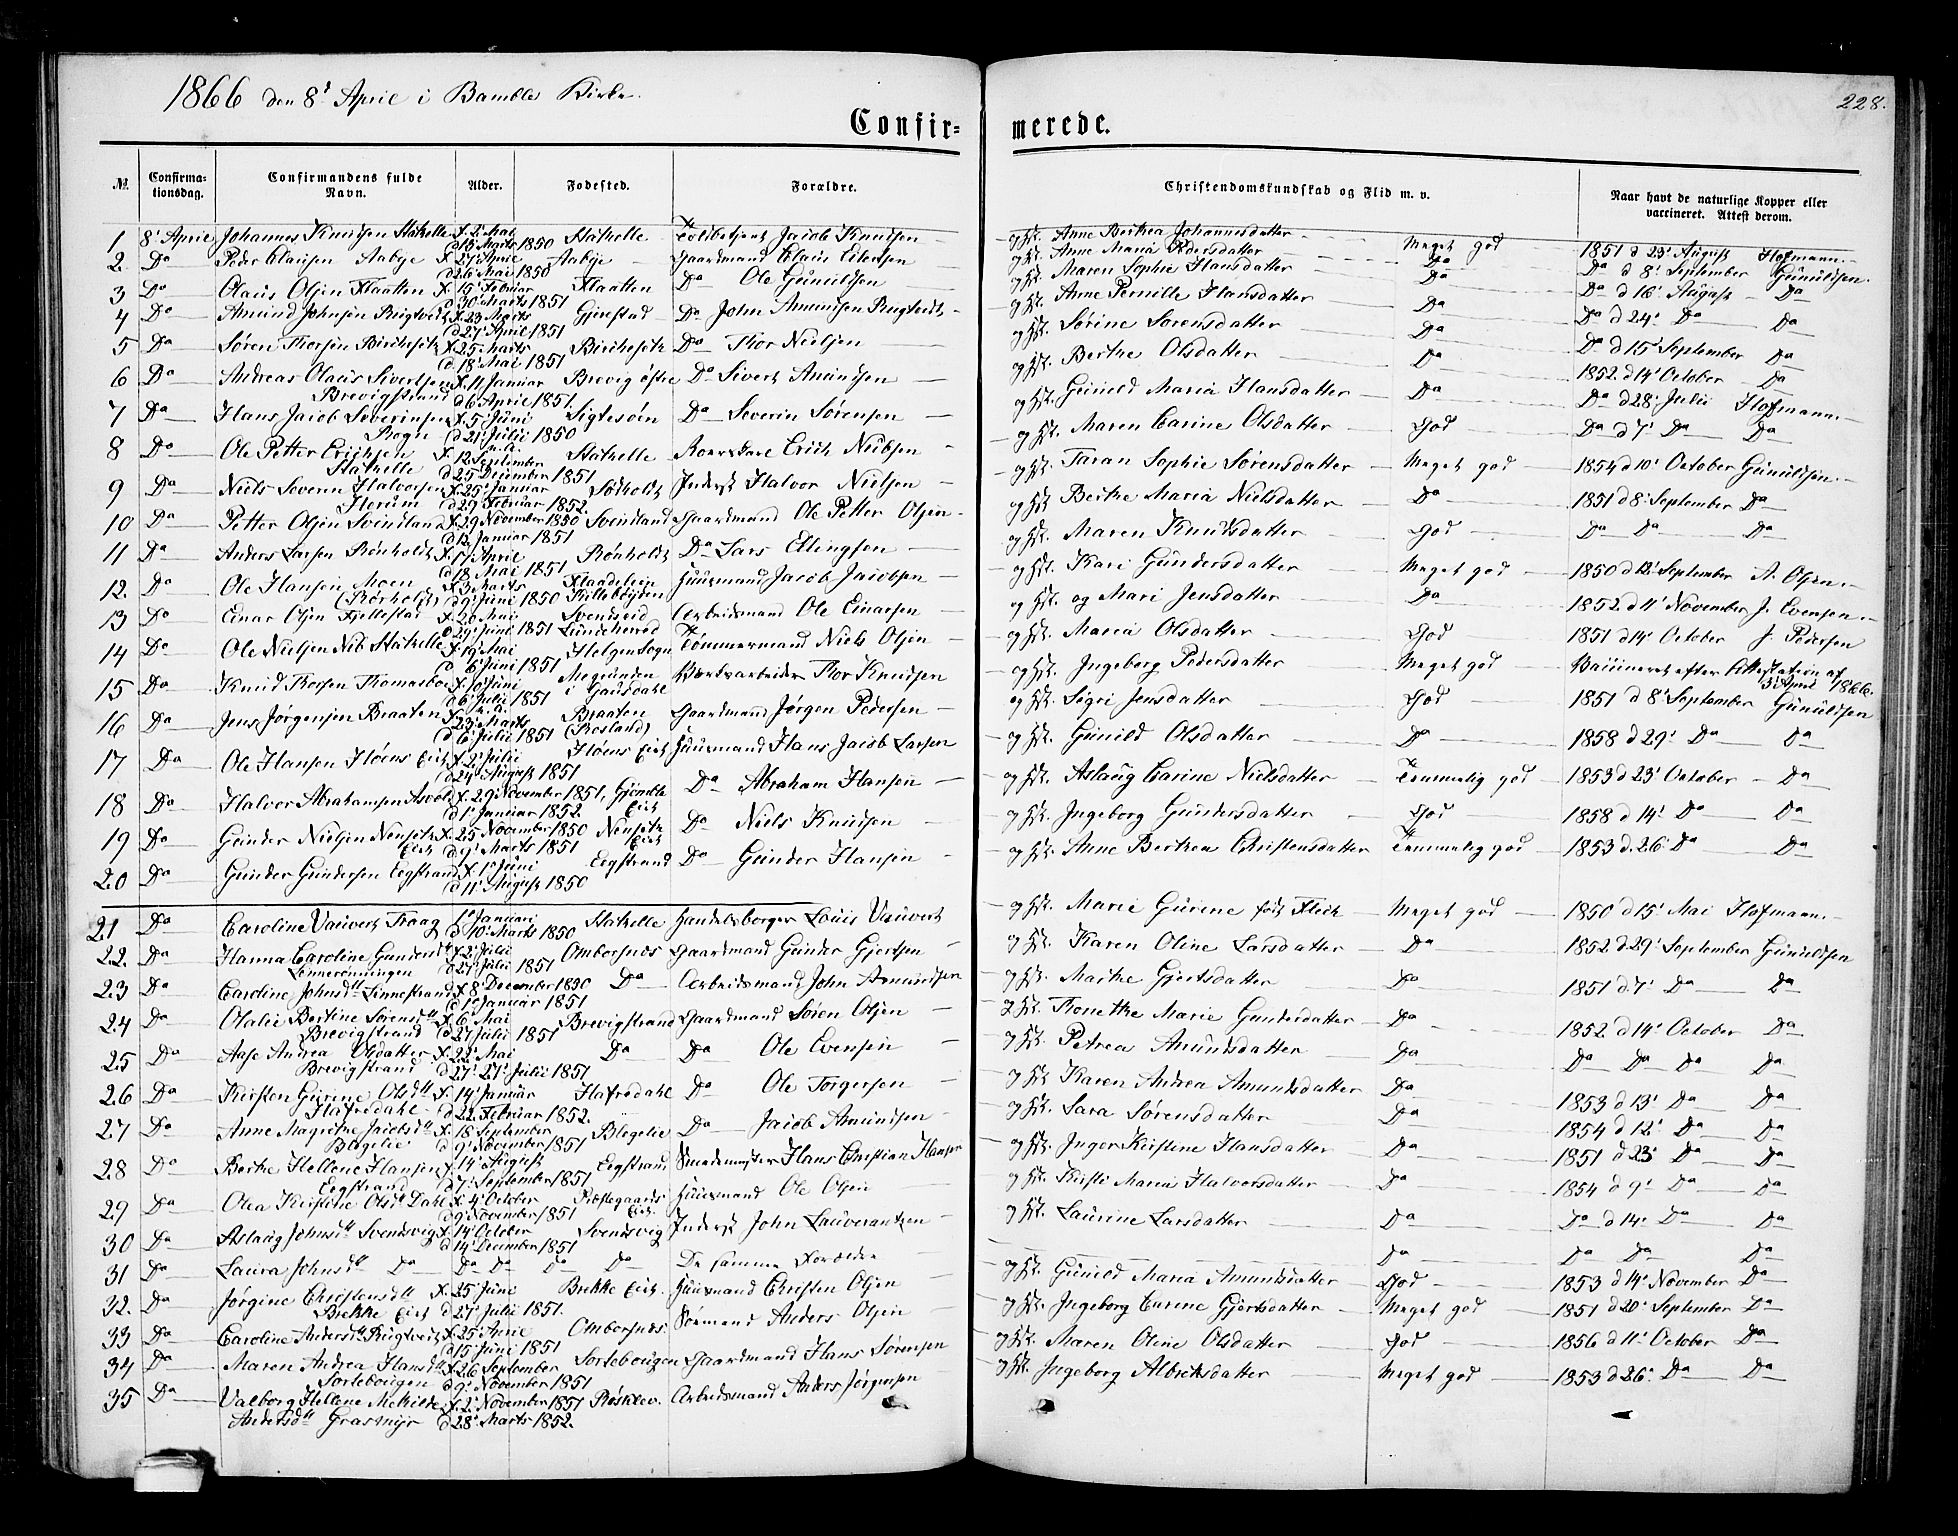 1866 den 8' April i Bamble Kirke.
228.
Confir-
merede.
№
Confirma-
tionsdag.
Confirmandens fulde
Navn.
Alder.
Fødested.
Forældre.
Christendomskundskab og Flid m. v.
Naar havt de naturlige Kopper eller
vaccineret. Attest derom.
1 8' April Johannes Knudsen Stathelle f. 2' Mai d 13' Marts 1850 Stathelle Toldbetjent Jacob Knudsen og Hst. Anne Berthea Johannesdatter Meget god 1851 d 23' August Hofmann.
2. Do Peder Clausen Aabye f. 27' April d 26' Mai 1850 Aabye Gaardmand Claus og Hst. Anne Maria Pedersdatter Do Do d 8' September Gunuldsen.
3 Do Olaus Olsen Flaatten f. 15' Februar d 30' Marts 1851 Flaatten Do Ole Gunuldsen og Hst. Maren Sophie Hansdatter Do Do d 16' August Do
4 Do Amund Johnsen Rugtvedt f. 23' Marts d 27' April 1851 Gjerstad Do John Amundsen Rugtvedt og Hst. Anne Pernille Hansdatter Do Do d 24' Do Do
5 Do Søren Thorsen f. 25' Marts d 18' Mai 1851 Do Thor Nielsen og Hst. Sørine Sørensdatter Do Do d 15' September Do
6 Do Andreas Olaus Sivertsen Brevigstrand f. 11' Januar d 6' April 1851. Brevig østre Do Sivert Amundsen og Hst. Berthe Olsdatter Do 1852 d 14' October Do
7 Do Hans Jacob Severinsen Rogn f. 5' Juni d 21' Julii 1850 Do Severin Sørensen og Hst. Gunild Maria Hansdatter Do Do d 28' Julii Hofmann.
8 Do Ole Petter Erichsen Stathelle f. 12' September d 25' December 1851 Stathelle Erich og Hst. Maren Carine Olsdatter God Do d 7' Do Do
9 Do Niels Severin Halvorsen f. 25' Januar d 29' Februar 1852. Inderst Halvor Nielsen og Hst. Taran Sophie Sørensdatter Meget god 1854 d 10' October Gunuldsen.
10 Do Petter Olsen Svindland f. 29' November 1850 d 12' Januar 1851 Svindland Gaardmand Ole Petter Olsen og Hst. Berthe Maria Nielsdatter Do 1851 d 8' September Do
11 Do Anders Larsen Rønholdt f. 17' April d 18' Mai 1851 Rønholdt Do Lars Ellingsen og Hst. Maren Knudsdatter God Do Do Do
12. Do Ole Hansen Moen (Rørholdt) f. 3' Marts d 9' Juni 1850 Huusmand Jacob Jacobsen og Hst. Kari Gundersdatter Meget god 1850 d 12' September A. Olsen.
13 Do Einar Olsen Fjellestad f. 20' Mai d 29' Juni 1851 Arbeidsmand Ole Einarsen og Hst. og Mari Jensdatter Do 1852. d 11' November J. Evensen.
14 Do Ole Nielsen Stathelle f. 19' Mai d 8' Juni 1851 Tømmermand Niels Olsen og Hst. Maria Olsdatter God 1851 d 14' October J. Pedersen
15 Do Knud Thorsen f. 10' Juni d 6' Julii 1851 i Gausdahl Thor Knudsen og Hst. Ingeborg Pedersdatter Meget god Vaccineret efter Attestation af 3' April 1866.
16 Do Jens Jørgensen Braaten f. 23' Marts d 6' Julii 1851 Braaten (Rosland) Gaardmand Jørgen Pedersen og Hst. Sigri Jensdatter God 1851 d 8' September Gunuldsen
17 Do Ole Hansen Eiet f. 2' Julii d 24' August 1851 Eiet Huusmand Hans Jacob Larsen og Hst. Gunild Olsdatter Do 1858 d 29' Do Do
18 Do Halvor Abrahamsen f. 29' November 1851, d 1' Januar 1852. Eiet Do Abraham Hansen og Hst. Aslaug Carine Nielsdatter Temmelig god 1853 d 23' October Do
19 Do Gunder Nielsen Nensetz Eiet f. 25' November 1850 d 9' Marts 1851 Nensetz Eiet Do Niels Knudsen og Hst. Ingeborg Gundersdatter God 1858 d 14' Do Do
20 Do Gunder Gundersen Eegstrand f. 1' Juni d 11' August 1850 Eegstrand Do Gunder Hansen og Hst. Anne Berthea Christensdatter Temmelig god 1853 d. 26' Do Do
21 Do Caroline Vauvert Traag 1' Januari d 10' Marts 1850 Stathelle Handelsborger Louis Vauvert og Hst. Marie Gurine født Flech Meget god 1850 d 15' Mai Hofmann.
22. Do Hanna Caroline Gundersd. Lønnerønningen f. 2' Julii d 27' Julii 1851 Omborsnæs Gaardmand Gunder Gjertsen og Hst. Karen Oline Larsdatter Do 1852 d 29' September Gunuldsen
23 Do Caroline Johnsd. Linnestrand f. 8' December 1850 d 1' Januar 1851 Do Arbeidsmand John Amundsen og Hst. Marthe Gjertsdatter Do 1851 d. 7' Do Do
24 Do Olalie Bertine Sørensd. Brevigstrand f. 6' Mai d 27' Julii 1851 Brevigstrand Gaardmand Søren Olsen og Hst. Thonethe Marie Gundersdatter Do 1852. d 14' October Do
25 Do Aase Andrea Olsdatter Brevigstrand f. 22' Mai d 27' Julii 1851 Do Do Ole Evensen og Hst. Petrea Amundsdatter Do Do Do Do Do
26 Do Kirsten Gurine Olsd. Hafredahl f. 14' Januar d 22. Februar 1852. Hafredahl Do Ole Torgersen og Hst. Karen Andrea Amundsdatter Do 1853 d 13' Do Do
27 Do Anne Magrethe Jacobsd. Blegelie f. 18' September d 9' November 1851 Blegelie Do Jacob Amundsen og Hst. Sara Sørensdatter Do 1854 d 12' Do Do
28 Do Berthe Hellene Hansen Eegstrand f. 14' August d 7' September 1851 Eegstrand Smedemester Hans Christian Hansen og Hst. Inger Kirstine Hansdatter Do 1851 d 23' Do Do
29 Do Olea Kirstine Olsd. Dahl f. 4' October d 9' November 1851 Præstegaards Eiet. Huusmand Ole Olsen og Hst. Kirsti Maria Halvorsdatter Do 1854 d 9' Do Do
30 Do Aslaug Johnsd. Svendsvig f. 14' October d 14' December 1851 Svendsvig Inderst John Lauverantzen og Hst. Laurine Larsdatter Do Do d 14' Do Do
31 Do Laura Johnsd. Do Do Do Do Do De samme Forældre Do Do Do Do
32. Do Jørgine Christensd. Brekke Eiet f. 25' Juni d 27' Julii 1851. Brekke Eiet. Huusmand Christen Olsen og Hst. Gunild Maria Amundsdatter God 1853 d 14' November Do
33 Do Caroline Andersd. Rugtvedt f. 25' April d 15' Juni 1851 Omborsnæs Sømand Anders Olsen og Hst. Ingeborg Carine Gjertsdatter Meget god 1851 d 20' September Do
34 Do Maren Andrea Hansd. Sortebougen f. 26' September d 9' November 1851 Sortebougen Gaardmand Hans Sørensen og Hst. Maren Oline Olsdatter God 1856 d 11' October Do
35 Do Valborg Hellene Mathilde Andersd. Grasmyr f. 2' November 1851 d 28' Marts 1852. Røsklev Arbeidsmand Anders Jørgensen og Hst. Ingeborg Albrektsdatter Meget god 1853 d 26' Do Do